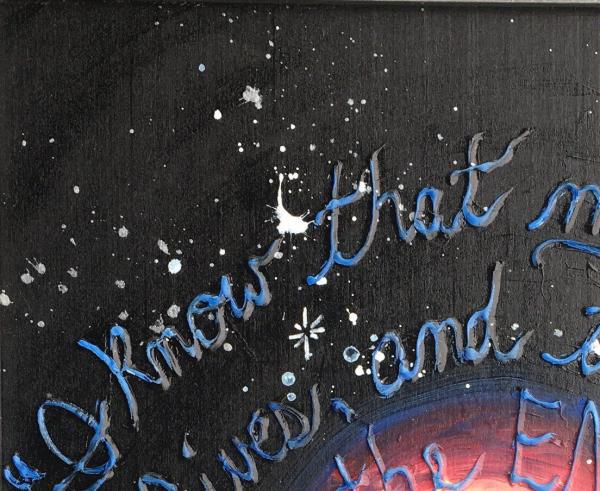 "I know that m
lives, and
the EA